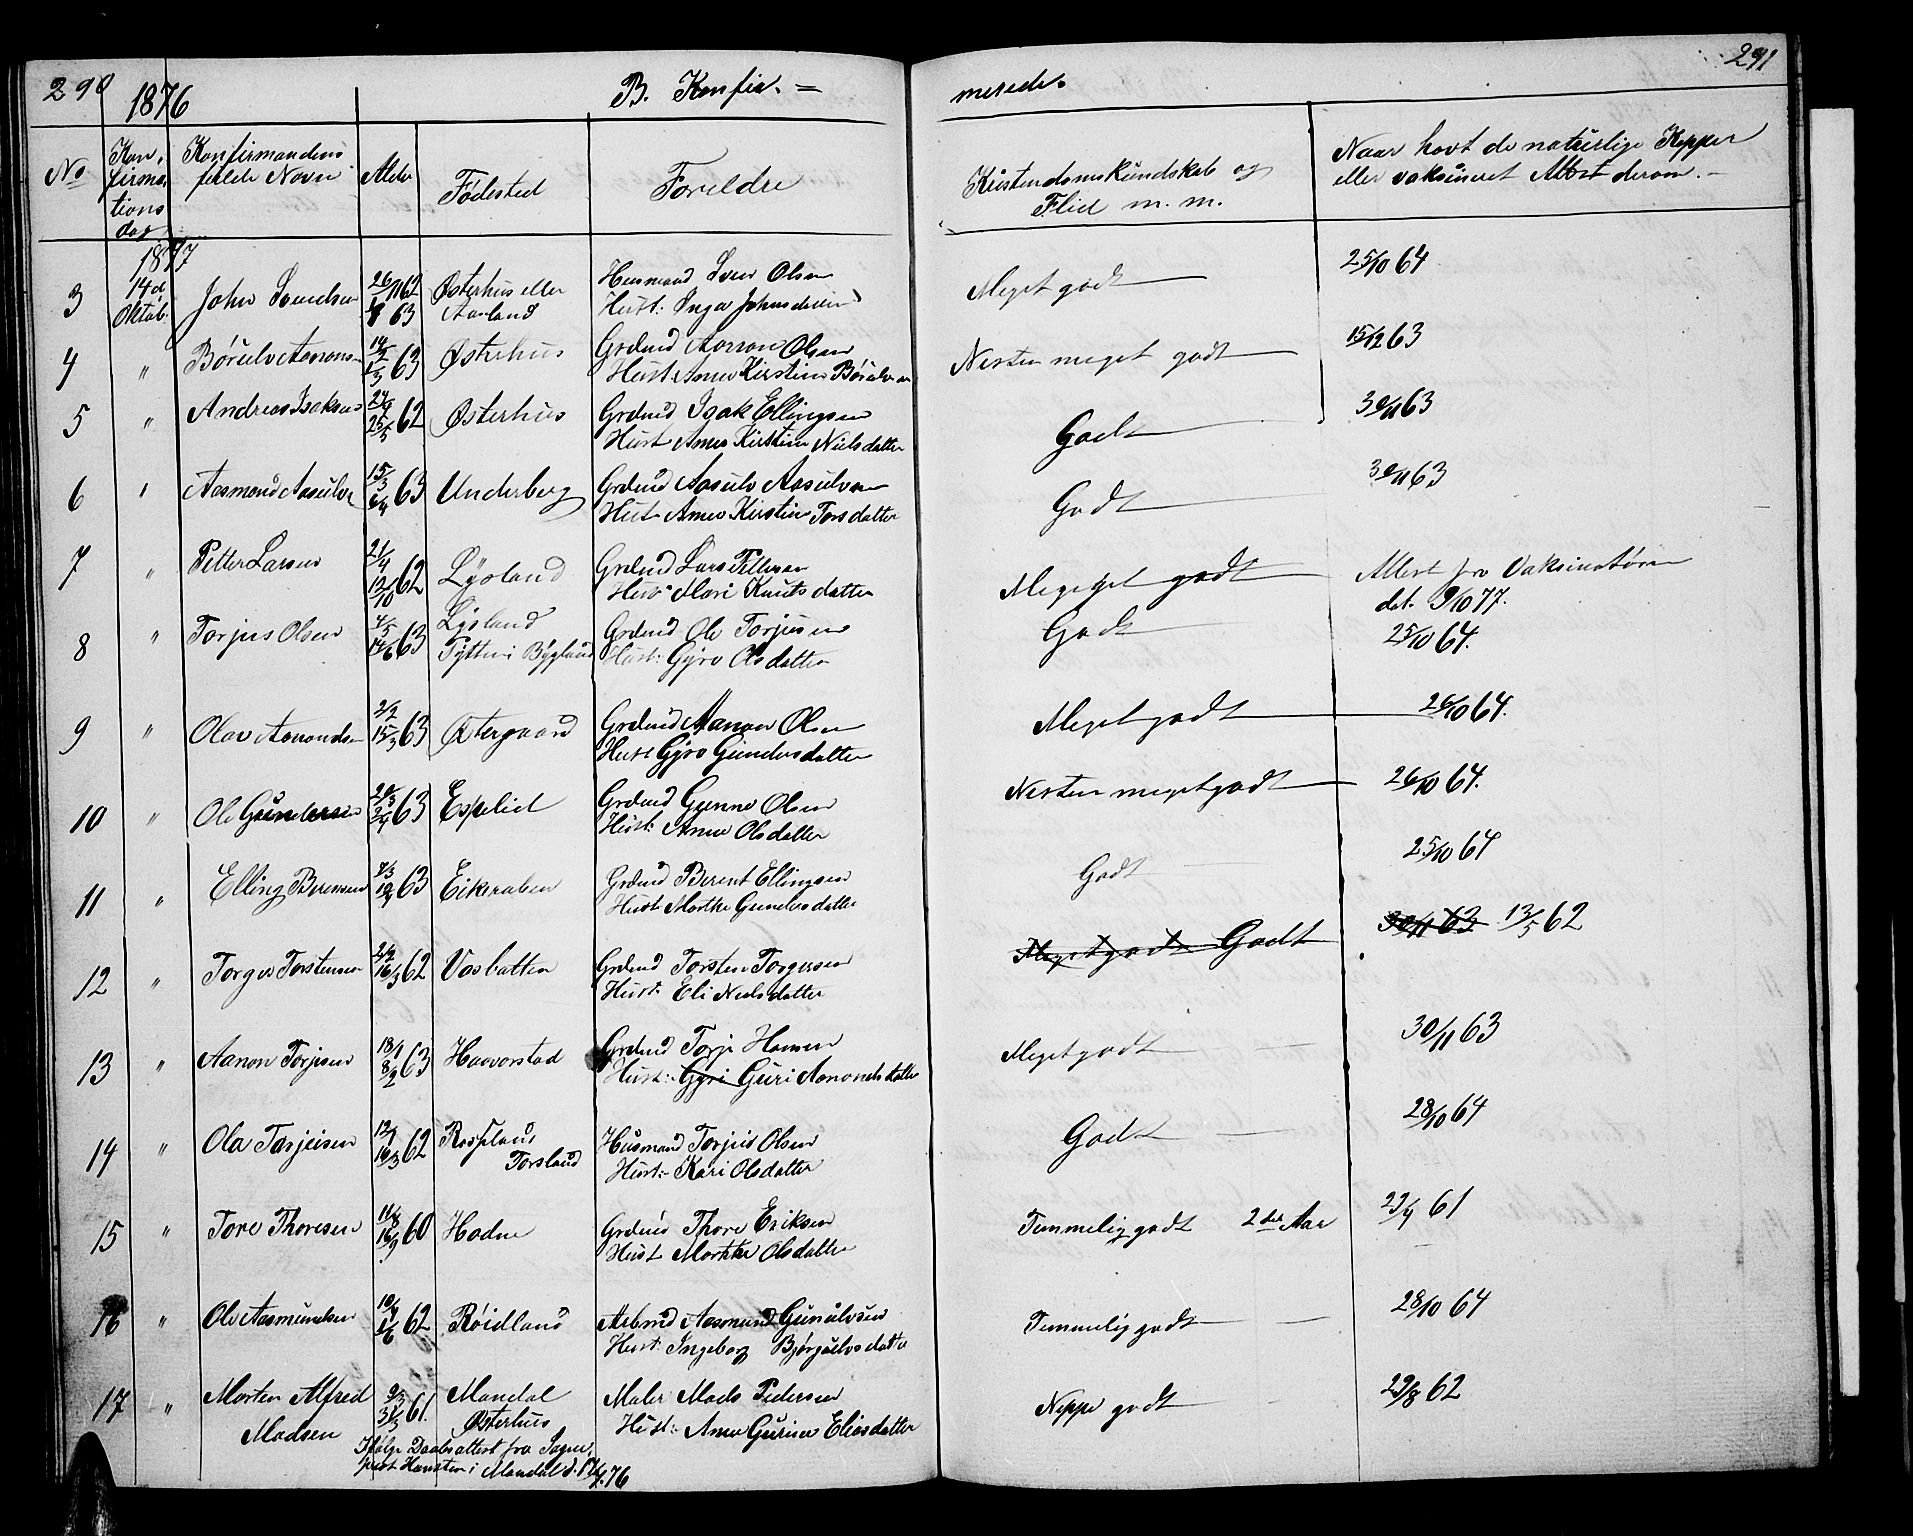 290
1876
B. Konfir. =
merede.
291
No
Kon,
firma,
tions
dag
Konfirmandens
fulde Navn
Alder
Fødested
Foreldre
Kristendomskundskab og
Flid m. m.
Naar havt de naturlige Kopper
eller vaksineret Attest derom. -
1877
3 14d Oktob. John Svendsen 26/11 62 63 Østerhus eller Aarland
Husmand Sven Olsen
Hust: Inga Johnsdatter
Meget godt 25/10 64
4 " Børiulv Aanons. 14/2 63 Østerhus
Grdmd Aanon Olsen
Hust Anne Kirstine Børiulvsen
Nesten meget godt 15/12 63
5 " Andreas Isaksen 62 Østerhus
Grdmd Isak Ellingsen
Hust Anne Kirstine Nielsdatter
Godt 30/11 63
6 " Aasmond Aasulvs. 15/3 63 Underberg
Grdmd Aasulv Aasulvsen
Hust Anne Kirstine Torsdatter
Godt 30/11 63
7 " Petter Larsen 21/4 12/10 62 Lysland
Grdmd Lars Pettersen
Hust Mari Knutsdatter
Megeget godt Attest fra Vaksinatøren
dat. 9/10 77.
8 " Torjus Olsen 4/5 14/6 63 Lysland
i Bygland
Grdmd Ole Torjusen
Hust: Gyro Olsdatter
Godt 25/10 64.
9 " Olav Aanondsen 2/2 15/3 63 Østergaard
Grdmd Aanon Olsen
Hust Gyro Gundersdatter
Meget godt 26/10 64.
10 " Ole Gundersen 63 Espelid
Grdmd Gunne Olsen
Hust: Anne Olsdatter
Nesten meget godt 26/10 64.
11 " Elling Berensen 7/3 19/4 63 Eikeraben
Grdmd Berent Ellingsen
Hust Marthe Gundersdatter
Godt 25/10 64
12 " Torger Torstensen 24/2 16/3 62 Vasbotten
Grdmd Torsten Torgersen
Hust: Eli Nielsdatter
Meget godt Godt 30/11 63 13/5 62
13 " Aanon Torjesen 18/1 8/2 63 Haaverstad
Grdmd Torje Hansen
Hust: Gyri Guri Aanondsdatter
Meget godt 30/11 63
14 " Ola Torjeisen 12/1 16/3 62 Rosseland
Torsland
Husmand Torjus Olsen
Hust: Kari Olsdatter
Godt 28/10 64
15 " Tore Thoresen 11/8 16/9 60 Hodne
Grdmd Thore Eriksen
Hust Marthe Olsdatter
Temmelig godt 2det Aar 23/9 61
16 " Ole Aasmundsen 10/4 1/6 62 Røidland
Arbmd Aasmund Gunulvsen
Hust: Ingeborg Bjørgulvsdatter
Temmelig godt 28/10 64
17 " Morten Alfred
Madsen
9/3 31/3 61. Mandal
Østerhus
Maler Mads Pedersen
Hust: Anne Gurine Eliasdatter
Neppe godt 29/8 62
Ifølge Daabsattest fra Sogne,
prest Hansten i Mandal d. 76